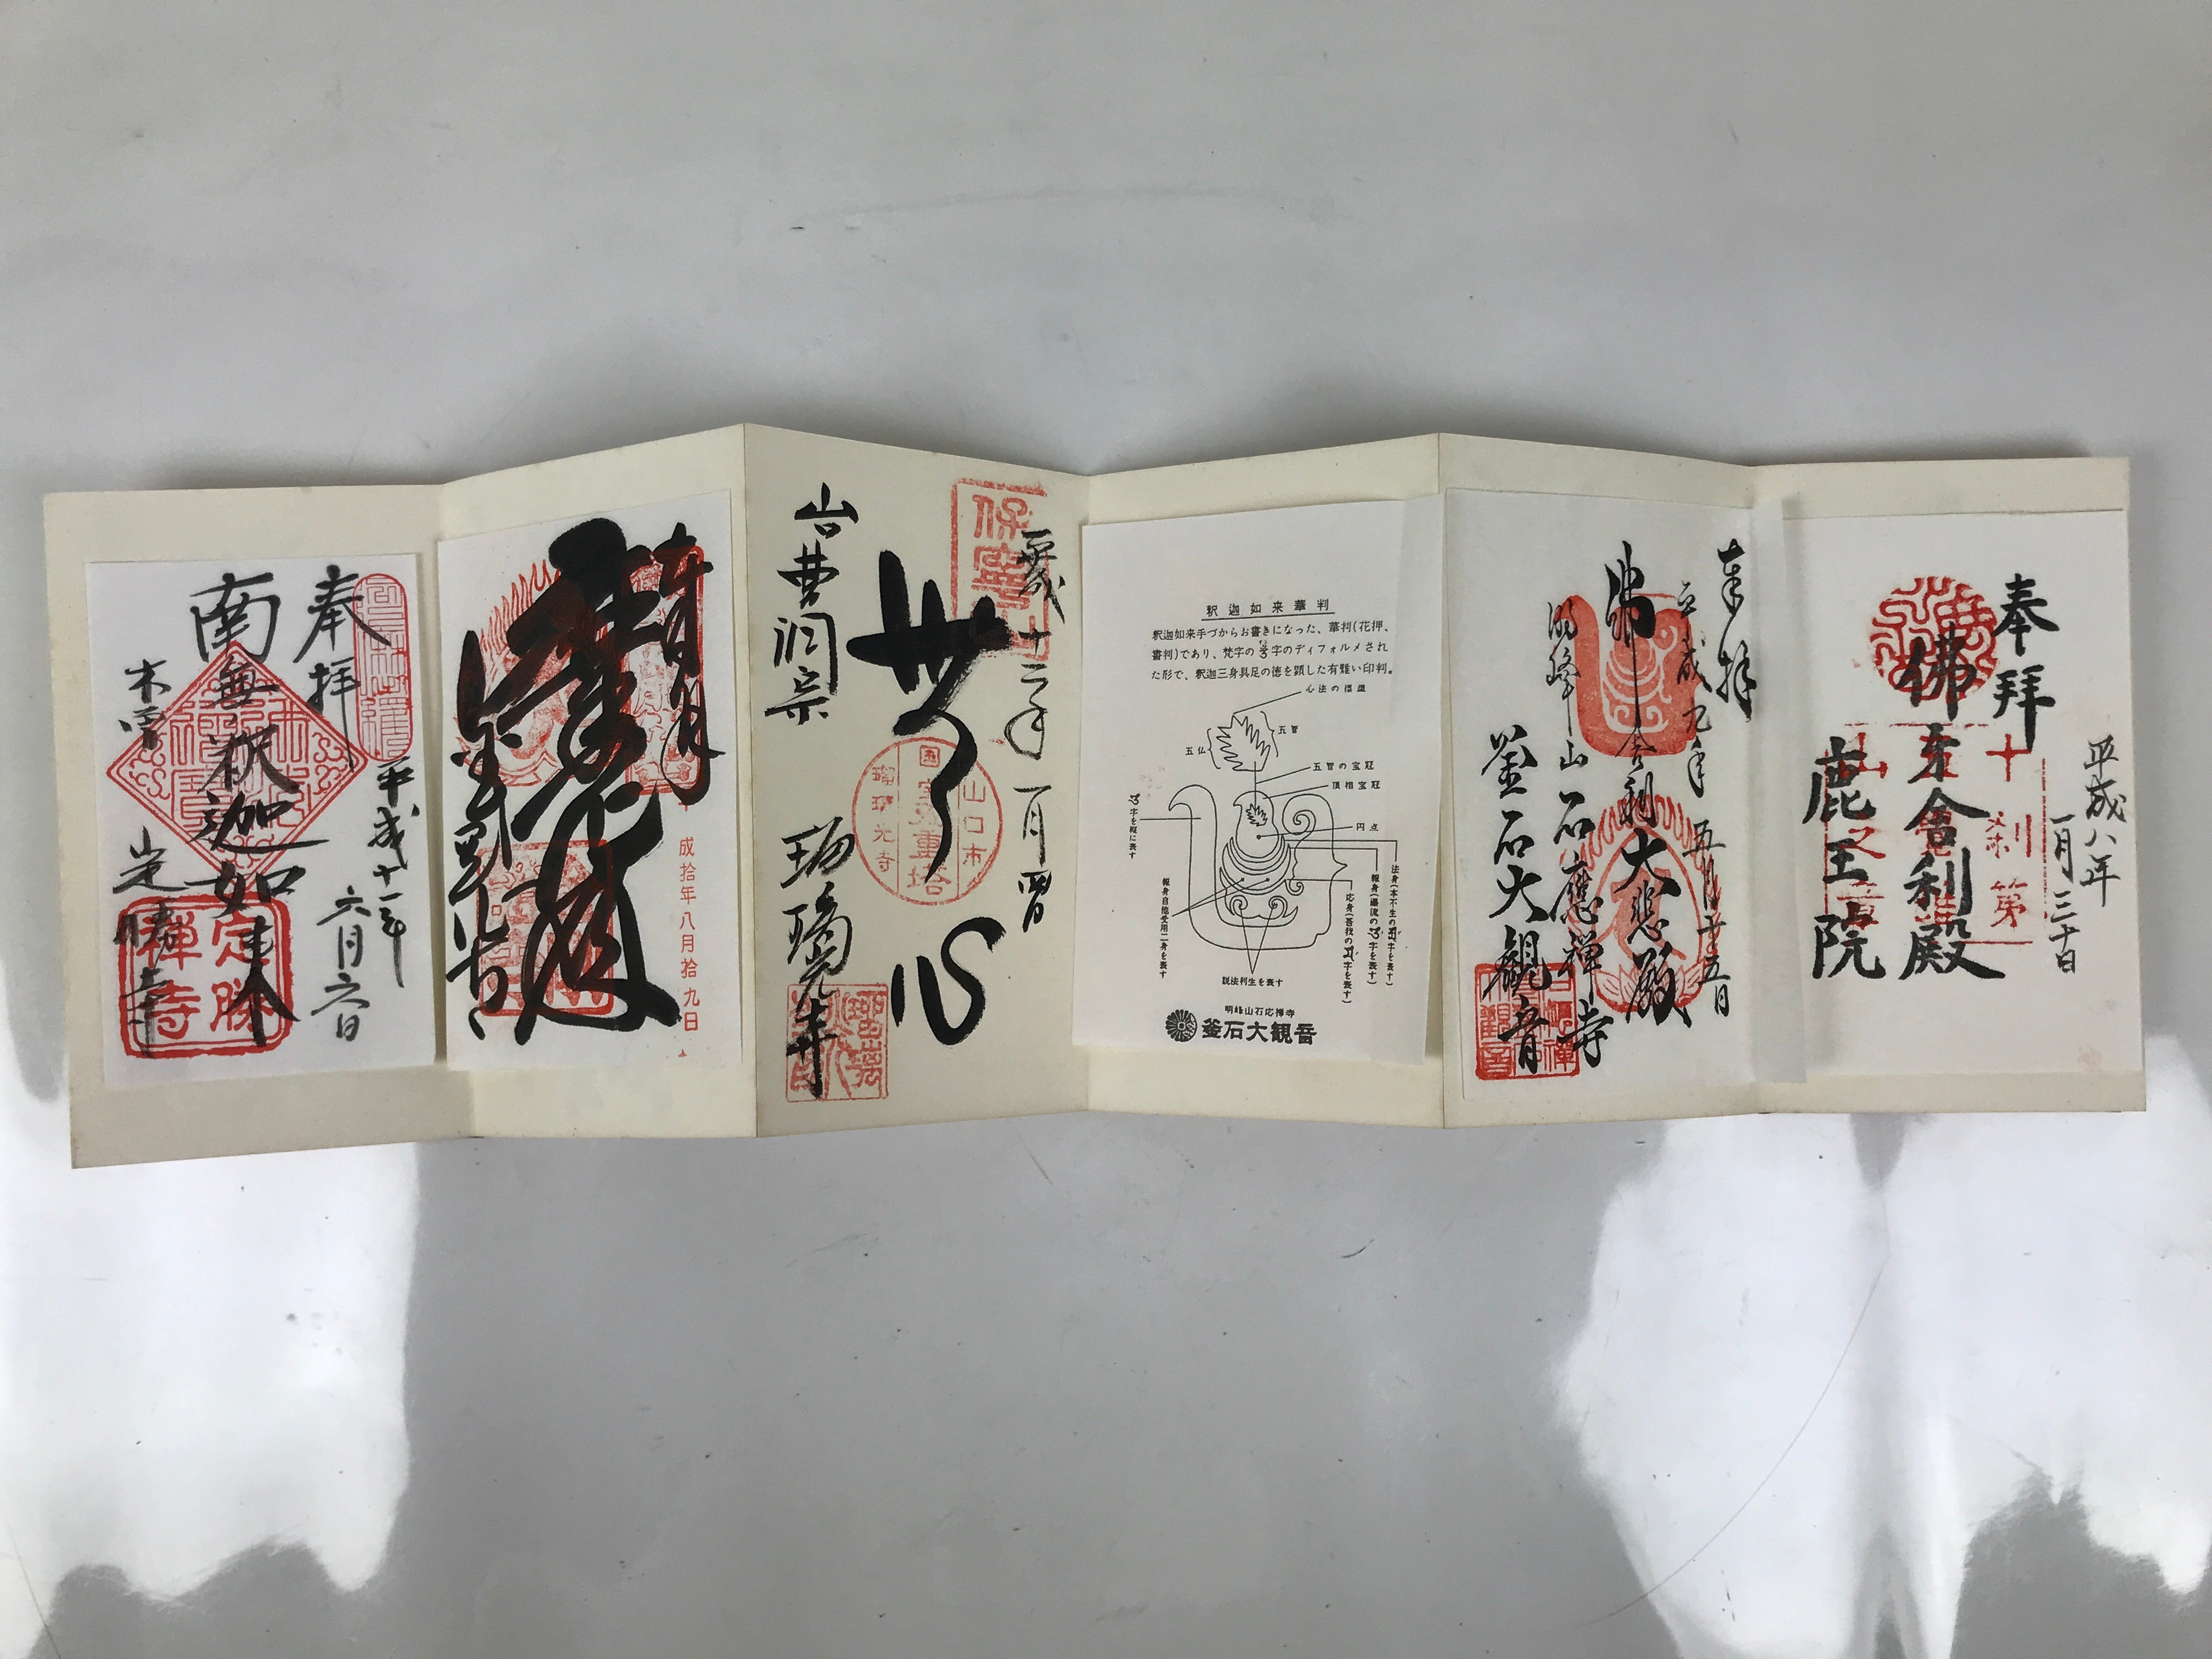 平成八年
一月三十日
奉拜
十刹第
佛牙舎利殿
鹿王院
奉拝
平成九年五月廿五日
佛舎利大悲殿
明峰山石應禅寺
釜石大観音
釈迦如来華判
釈迦如来手づからお書きになった、華判(花押、
書判)であり、梵字の字のディフォルメされ
た形で、釈迦三身具足の徳を顕した有難い印判。
心法の標識
五智
五仏
五智の宝冠
頂相宝冠
円点
字を縦に表す
法身(本不生の字を表す)
報身(瀑流の字を表す)
応身(吾我の字を表す)
報身自他受用二身を表す
説法利生を表す
明峰山石応禅寺
釜石大観音
平成十二年一月四日
保寧
心
山口市
国宝五重塔
瑠璃光寺
山口曹洞宗
瑠璃光寺
成拾年八月拾九日
奉拝
平成十一年
六月六日
南無釈迦如来
木曽
定勝寺
定勝禅寺